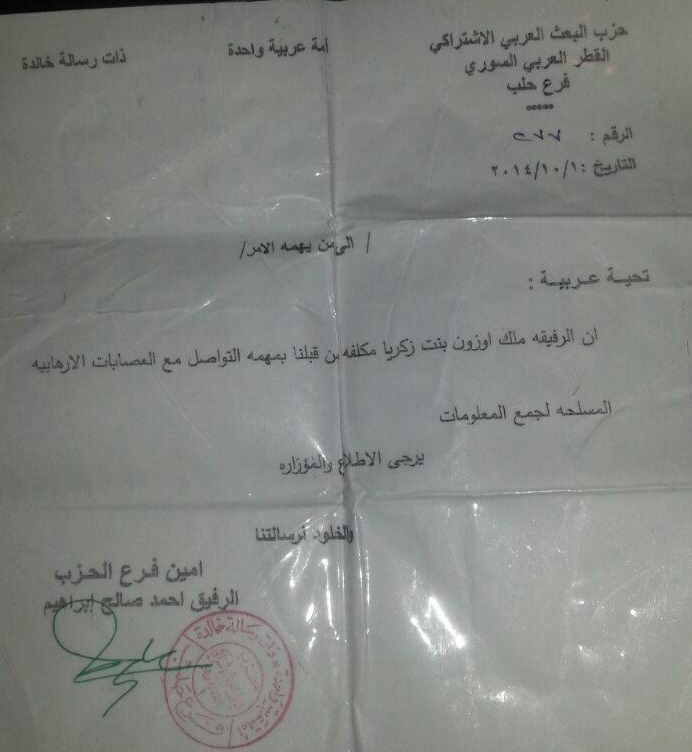 حزب البعث العربي الاشتراكي
القطر العربي السوري
فرع حلب
أمة عربية واحدة
ذات رسالة خالدة
الرقم :
التاريخ : ٢٠١٤/١٠/١
/ الى من يهمه الامر/
تحية عربية :
ان الرفيقه ملك اوزون بنت زكريا مكلفه من قبلنا بمهمه التواصل مع العصابات الارهابيه
المسلحه لجمع المعلومات
يرجى الاطلاع والمؤزاره
والخلود لرسالتنا
امين فرع الحزب
الرفيق احمد صالح ابراهيم
ذات رسالة خالدة